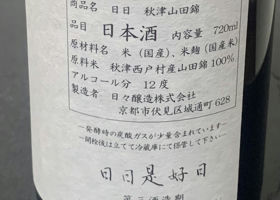 商品名 日日 秋津山田錦
品目 日本酒 内容量 720ml
原材料名 米(国産)、米麹(国産米)
原料米 秋津西戸村産山田錦100%
アルコール分 12度
製造者 日々醸造株式会社
京都市伏見区城通町628
―発酵時の炭酸ガスが少量含まれています―
―開栓後は立てて冷蔵庫にて保管して下さい―
日日是好日